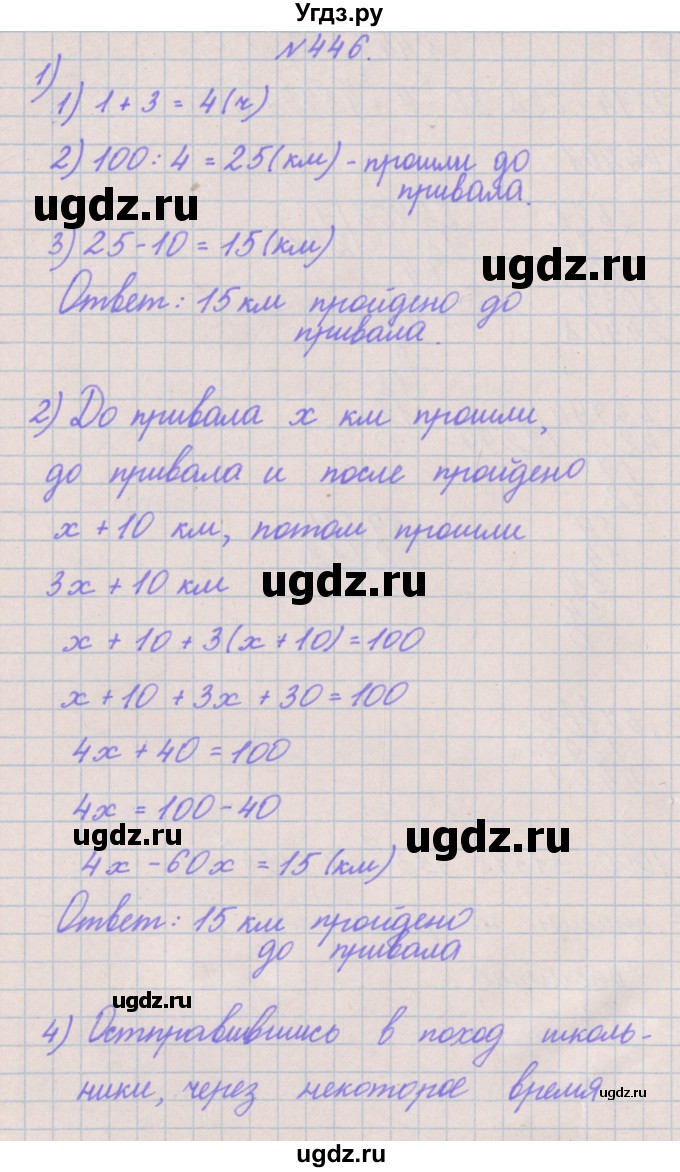 Угдз.ру
№446.
1)
1) 1 + 3 = 4(ч)
2) 100 : 4 = 25(км) - прошли до
привала.
ugdz.ru
3) 25 - 10 = 15(км)
ugdz.ru
Ответ: 15 км пройдено до
привала.
2) До привала х км прошли,
до привала и после пройдено
х + 10 км, потом прошли
3х + 10 км
ugdz.ru
х + 10 + 3(х + 10) = 100
х + 10 + 3х + 30 = 100
4х + 40 = 100
4х = 100 - 40
ugdz.ru
ugdz.ru
4х - 60х = 15 (км)
Ответ: 15 км пройдено
до привала
ugdz.ru
4) Остправившись в поход школь-
ники, через некоторое время
ugdz.ru
ugdz.ru